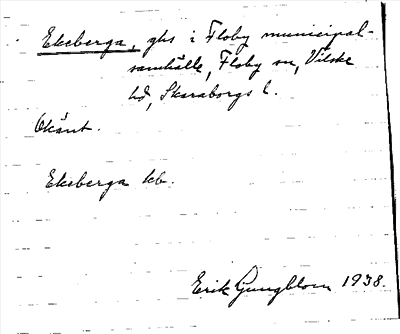 Eksberga, ghs i Floby municipal-
samhälle, Floby sn, Vilske
hd, Skaraborgs l.
Okänt.
Eksberga kb.
Erik Ljungblom 1938.